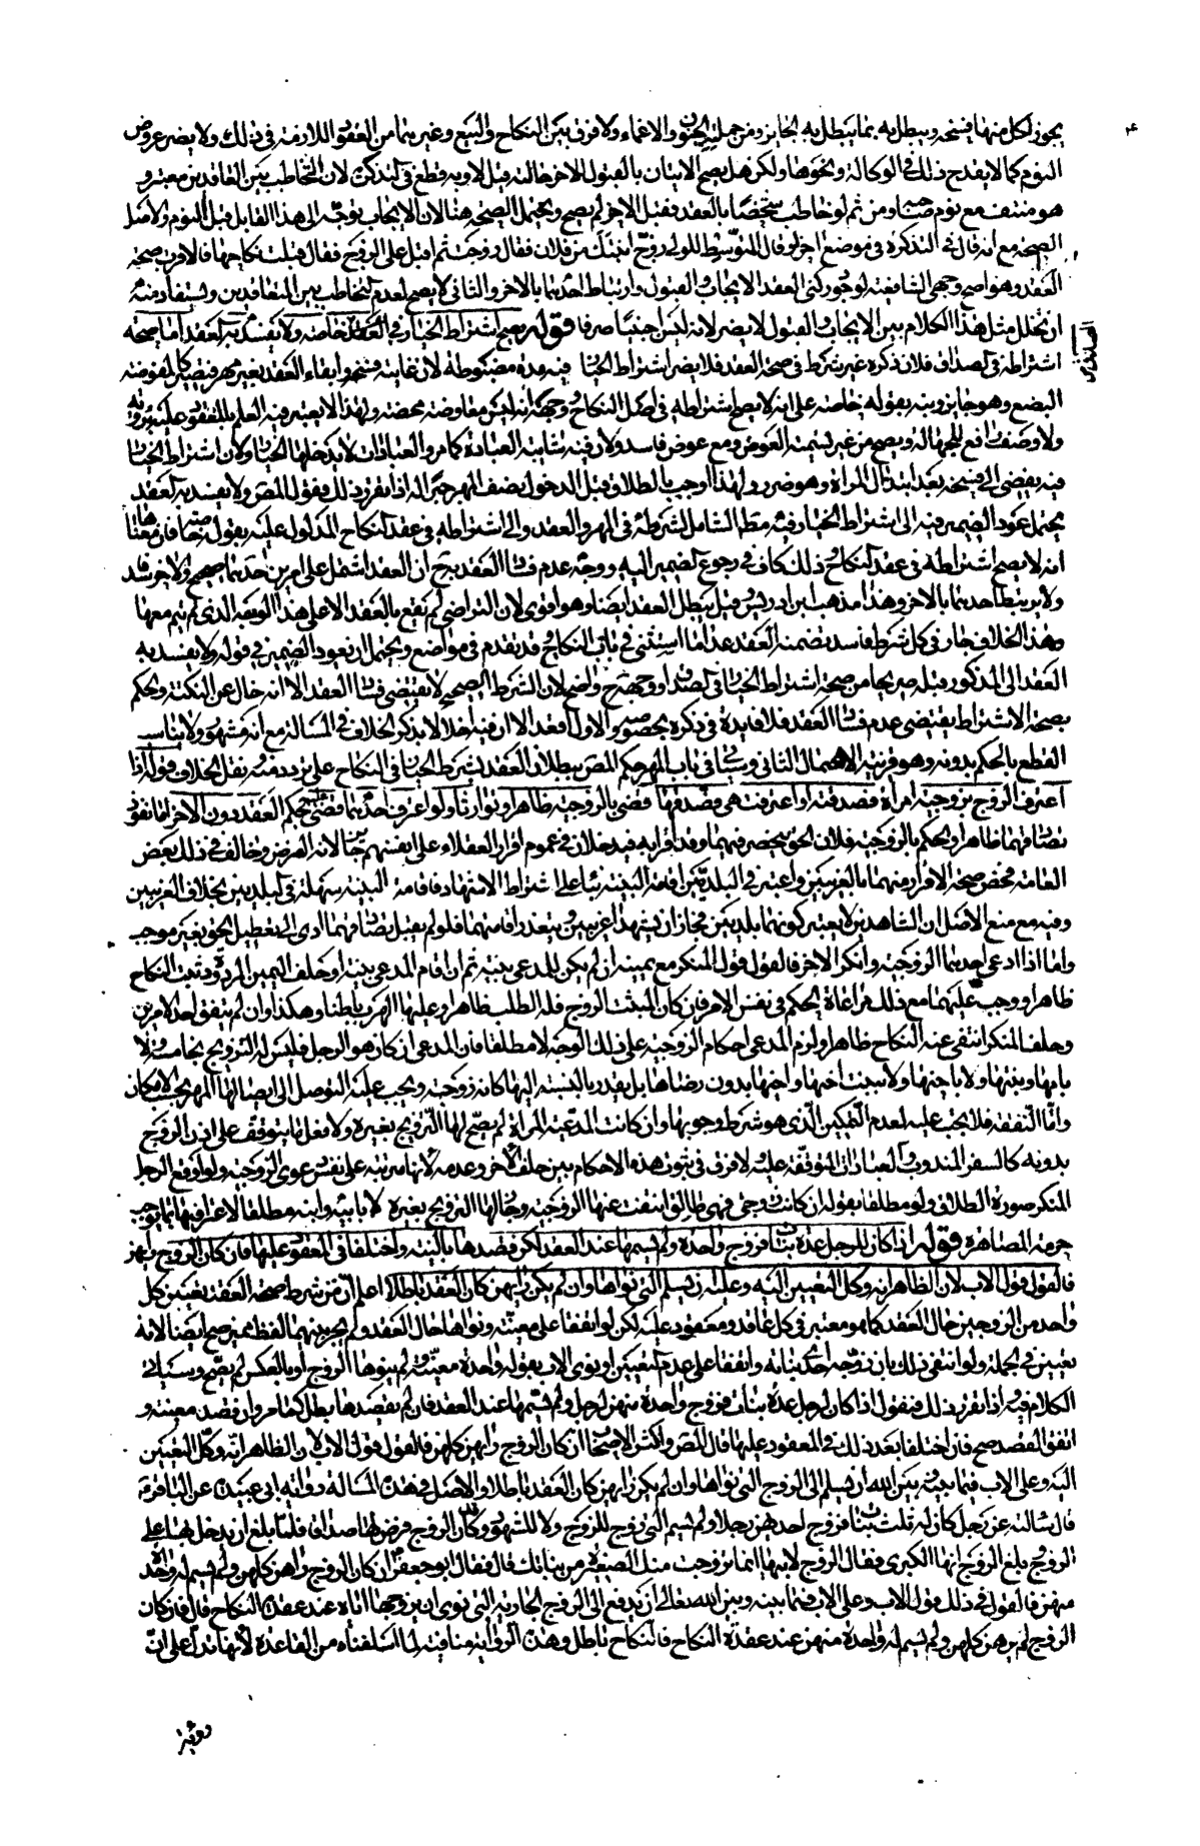 يجوز لكل منها فسخه ويبطل به بما يبطل به الجايز ومن جملته الجنون والاغماء ولا فرق بين النكاح والبيع وغيرهما من العقود اللازمة في ذلك ولا يضر عروض
النوم كما لا يقدح ذلك في الوكالة ونحوها ولكن هل يصح الاتيان بالقبول الاخر حالته قيل لا وبه قطع في التذكرة لان التخاطب بين العاقدين معتبر و
هو منتف مع نوم صاحبه ومن ثم لو خاطب شخصا بالعقد فقبل الاخر لم يصح ويحتمل الصحة هنا لان الايجاب توجه الى هذا القابل قبل النوم والاصل
الصحة مع انه قال في التذكرة في موضع اخر لو قال المتوسط للولي زوج ابنتك من فلان فقال زوجت ثم اقبل على الزوج فقال قبلت نكاحها فالاقرب صحة
العقد وهو اصح وجهي الشافعية لوجود ركني العقد الايجاب والقبول وارتباط احدهما بالاخر والثاني لا يصح لعدم التخاطب بين المتعاقدين ويستفاد منه
ان تخلل مثل هذا الكلام بين الايجاب والقبول لا يضر لانه ليس اجنبيا صرفا قوله يصح اشتراط الخيار في الصداق خاصة ولا يفسد به العقد اما صحة
اشتراطه في الصداق فلان ذكره غير شرط في صحة العقد فلا يضر اشتراط الخيار فيه مدة مضبوطة لان غايته فسخه وابقاء العقد بغير مهر فيصير كالمفوضة
البضع وهو جايز ونبه بقوله خاصة على انه لا يصح اشتراطه في اصل النكاح ووجهه انه ليس معاوضة محضة ولهذا لا يعتبر فيه العلم بالمعقود عليه برؤية
ولا وصف رافع للجهالة ويصح من غير تسمية العوض ومع عوض فاسد ولان فيه شائبة العبادة كما مر والعبادات لا يدخلها الخيار ولان اشتراط الخيار
فيه يفضي الى فسخه بعد ابتذال المراة وهو ضرر ولهذا اوجب بالطلاق قبل الدخول نصف المهر جبرا له اذا تقرر ذلك فقول المص ولا يفسد به العقد
يحتمل عود الضمير فيه الى اشتراط الخيار فيه مطلقا الشامل لشرطه في المهر والعقد والى اشتراطه في عقد النكاح المدلول عليه بقوله خاصة فان معناها
انه لا يصح اشتراطه في عقد النكاح وذلك كاف في رجوع الضمير اليه ووجه عدم فساد العقد به ح ان العقد اشتمل على امرين احدهما صحيح والاخر فاسد
ولا يرتبط احدهما بالاخر وهذا مذهب ابن ادريس وقيل يبطل العقد ايضا وهو اقوى لان التراضي لم يقع بالعقد الا على هذا الوجه الذي لم يتم معها
وهذا الخلاف جار في كل شرط فاسد تضمنه العقد عدا ما استثني في باب النكاح وقد تقدم في مواضع ويحتمل ان يعود الضمير في قوله ولا يفسد به
العقد الى المذكور قبله صريحا من صحة اشتراط الخيار في الصداق ووجهه ح واضح لان الشرط الصحيح لا يقتضي فساد العقد الا انه خال عن النكتة والحكم
بصحة الاشتراط يقتضي عدم فساد العقد فلا فايدة في ذكره بخصوصه والاول اقعد الا ان فيه اخلالا بذكر الخلاف في المسالة مع انه مشهور ولا يناسب
القطع بالحكم بدونه وهو قرينة الاحتمال الثاني وسياتي في باب المهر حكم المص ببطلان العقد بشرط الخيار في النكاح على تردد منه ونقل الخلاف قوله اذا
اعترف الزوج بزوجية امراة فصدقته او اعترفت هي فصدقها قضي بالزوجية ظاهرا وتوارثا ولو اعترف احدهما قضي عليه بحكم العقد دون الاخر اما ثبوت
تصادقهما ظاهرا والحكم بالزوجية فلان الحق منحصر فيهما وقد اقرا به فيدخلان في عموم اقرار العقلاء على انفسهم جائز لانه الفرض وخالف في ذلك بعض
العامة فخص صحة الاقرار منهما بالغريبين واعتبر في البلديين اقامة البينة بناء على اشتراط الاشهاد فاقامة البينة سهلة في البلديين بخلاف الغريبين
وفيه مع منع الاصل ان الشاهدين لا يعتبر كونهما بلديين فجاز ان يشهدا غريبين ويتعذر اقامتهما فلو لم يقبل تصادقهما ادى الى تعطيل الحق بغير موجب
واما اذا ادعى احدهما الزوجية وانكر الاخر فالقول قول المنكر مع يمينه ان لم يكن للمدعي بينة ثم ان اقام المدعي بينة او حلف اليمين المردودة ثبت النكاح
ظاهرا ووجب عليهما مع ذلك مراعاة الحكم في نفس الامر فان كان المثبت الزوج فله الطلب ظاهرا وعليها الهرب باطنا وهكذا وان لم يتفق احد الامرين
وحلف المنكر انتفى عنه النكاح ظاهرا ولزم المدعي احكام الزوجية على ذلك الوجه لا مطلقا فان المدعي ان كان هو الرجل فليس له التزويج بخامسة ولا
بامها وبنتها ولا باختها ولا ببنت اختها واخيها بدون رضاها بل يقدر بالنسبة اليها كانه زوجته ويجب عليه التوصل الى ايصالها المهر بحسب الامكان
واما النفقة فلا يجب عليه لعدم التمكين الذي هو شرط وجوبها وان كانت المدعية المراة لم يصح لها التزويج بغيره ولا فعل ما يتوقف على اذن الزوج
بدونه كالسفر المندوب والعبادات المتوقفة عليه لا فرق في ثبوت هذه الاحكام بين حلف الاخر وعدمه لانها مترتبة على نفس دعوى الزوجية ولو اوقع الرجل
المنكر صورة الطلاق ولو مطلقا بقوله ان كانت زوجتي فهي طالق انتفت عنها الزوجية وجاز لها التزويج بغيره لا بابيه وابنه مطلقا لاعترافها بما يوجب
حرمة المصاهرة قوله اذا كان للرجل عدة بنات فزوج واحدة ولم يسمها عند العقد لكن قصدها بالنية واختلفا في المعقود عليها فان كان الزوج راهن
فالقول قول الاب لان الظاهر انه وكل التعيين اليه وعليه ان يسلم التي نواها وان لم يكن راهن كان العقد باطلا اعلم ان من شرط صحة العقد تعيين كل
واحد من الزوجين حال العقد كما هو معتبر في كل عاقد ومعقود عليه لكن لو اتفقا على معينة ونواها حال العقد ولم يجر بينهما لفظ مميز صح ايضا لانه
تعيين في الجملة ولو انتفى ذلك بان زوجه احدى بناته واتفقا على عدم التعيين او نوى الاب بقوله واحدة معينة ولم ينوها الزوج او بالعكس لم يصح وسياتي
الكلام فيه اذا تقرر ذلك فنقول اذا كان لرجل عدة بنات فزوج واحدة منهن لرجل ولم يسمها عند العقد فان لم يقصدها بطل كما مر وان قصد معينة و
اتفق القصد صح فان اختلفا بعد ذلك في المعقود عليها قال المص واكثر الاصحاب ان كان الزوج راهن كلهن فالقول قول الاب لان الظاهر انه وكل التعيين
اليه وعلى الاب فيما بينه وبين الله ان يسلم الى الزوج التي نواها وان لم يكن راهن كان العقد باطلا والاصل في هذه المسالة رواية ابي عبيدة عن الباقر ع
قال سالته عن رجل كان له ثلث بنات فزوج احدهن رجلا ولم يسم التي زوج للزوج ولا للشهود وكان الزوج فرض لها صداقا فلما بلغ ان يدخل بها على
الزوج بلغ الزوج انها الكبرى فقال الزوج لابيها انما تزوجت منك الصغيرة من بناتك قال فقال ابو جعفر ع ان كان الزوج راهن كلهن ولم يسم له واحدة
منهن فالقول في ذلك قول الاب وعلى الاب فيما بينه وبين الله تعالى ان يدفع الى الزوج الجارية التي نوى ان يزوجها اياه عند عقدة النكاح قال فان كان
الزوج لم يرهن كلهن ولم يسم له واحدة منهن عند عقدة النكاح فالنكاح باطل وهذه الرواية منافية لما اسلفناه من القاعدة لانها تدل على ان